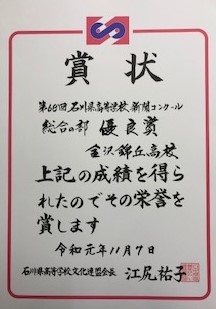 賞状
第68回石川県高等学校新聞コンクール
総合の部 優良賞
金沢錦丘高校
上記の成績を得ら
れたのでその栄誉を
賞します
令和元年11月7日
石川県高等学校文化連盟会長 江尻祐子